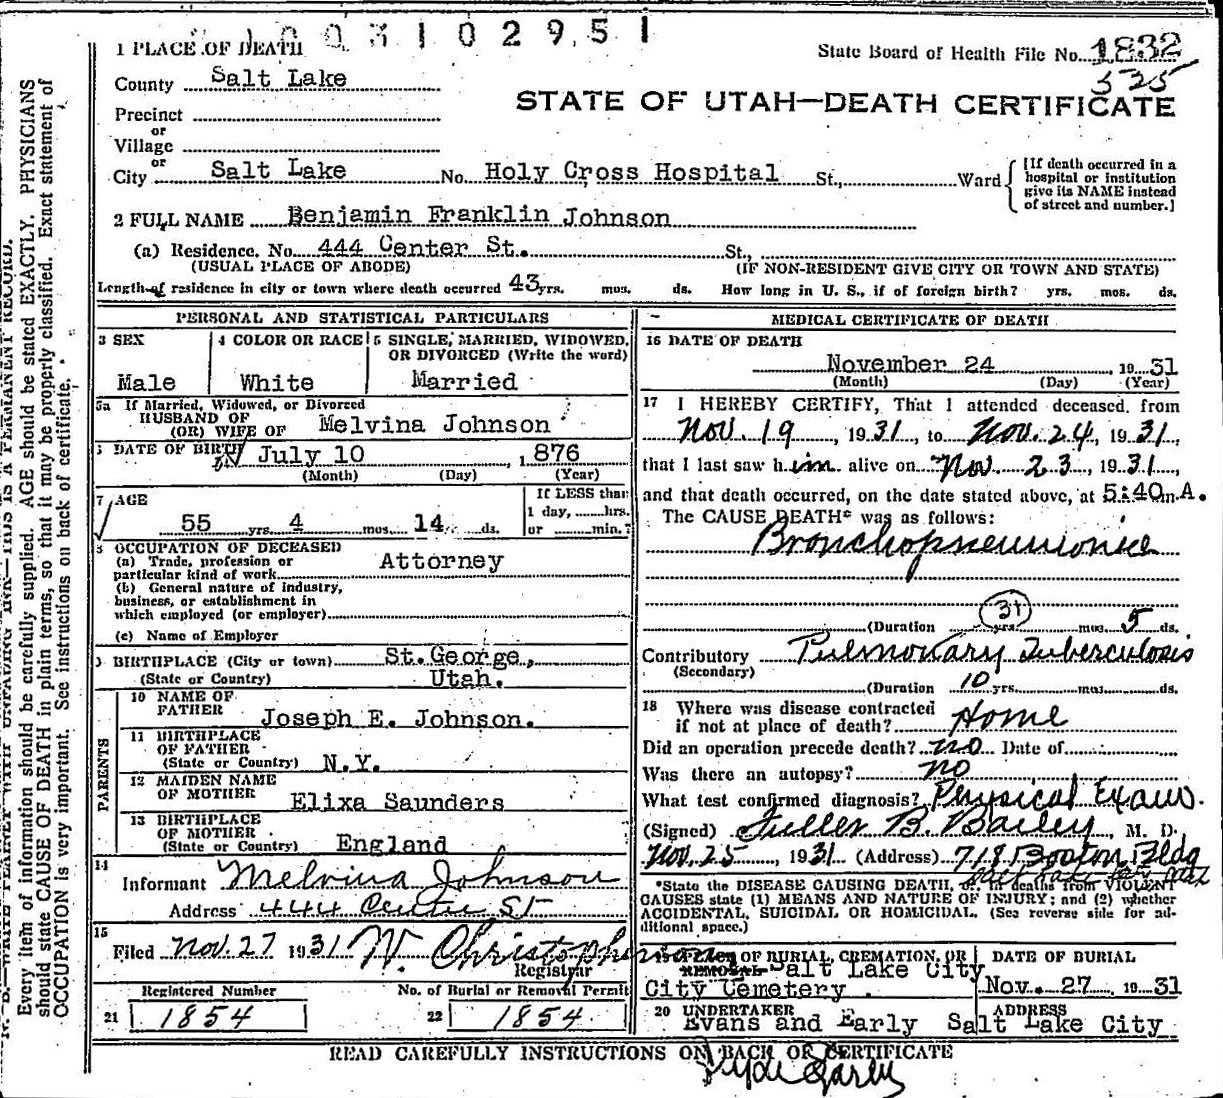 0 0 3 1 0 2 9 5 1
1 PLACE OF DEATH
State Board of Health File No. 1832
525
County Salt Lake
STATE OF UTAH—DEATH CERTIFICATE
Precinct
or
Village
or
City Salt Lake No. Holy Cross Hospital St., Ward
[If death occurred in a hospital or institution give its NAME instead of street and number.]
2 FULL NAME Benjamin Franklin Johnson
(a) Residence. No. 444 Center St. St.,
(USUAL PLACE OF ABODE) (IF NON-RESIDENT GIVE CITY OR TOWN AND STATE)
Length of residence in city or town where death occurred 43 yrs. mos. ds. How long in U. S., if of foreign birth? yrs. mos. ds.
PERSONAL AND STATISTICAL PARTICULARS
3 SEX
Male
4 COLOR OR RACE
White
5 SINGLE, MARRIED, WIDOWED, OR DIVORCED (Write the word)
Married
5a If Married, Widowed, or Divorced
HUSBAND OF
(OR) WIFE OF Melvina Johnson
6 DATE OF BIRTH July 10, 1876
(Month) (Day) (Year)
7 AGE
55 yrs. 4 mos. 14 ds.
If LESS than
1 day, hrs.
or min.?
8 OCCUPATION OF DECEASED
(a) Trade, profession or
particular kind of work Attorney
(b) General nature of industry,
business, or establishment in
which employed (or employer)
(c) Name of Employer
9 BIRTHPLACE (City or town) St. George,
(State or Country) Utah.
PARENTS
10 NAME OF FATHER Joseph E. Johnson.
11 BIRTHPLACE OF FATHER
(State or Country) N.Y.
12 MAIDEN NAME OF MOTHER Elixa Saunders
13 BIRTHPLACE OF MOTHER
(State or Country) England
14
Informant Melvina Johnson
Address 444 Center St
15
Filed Nov. 27 1931 W. Christopherson
Registrar
Registered Number
21 1854
No. of Burial or Removal Permit
22 1854.
MEDICAL CERTIFICATE OF DEATH
16 DATE OF DEATH
November 24, 1931
(Month) (Day) (Year)
17 I HEREBY CERTIFY, That I attended deceased from
Nov. 19, 1931, to Nov. 24, 1931,
that I last saw him alive on Nov. 23, 1931,
and that death occurred, on the date stated above, at 5:40 m.A.
The CAUSE DEATH* was as follows:
Bronchopneumonia
(Duration 31 yrs. mos. 5 ds.
Contributory Pulmonary Tuberculosis
(Secondary)
(Duration 10 yrs. mos. ds.
18 Where was disease contracted
if not at place of death? Home
Did an operation precede death? no Date of
Was there an autopsy? no
What test confirmed diagnosis? Physical Exam.
(Signed) Fuller B. Bailey, M. D.
Nov. 25, 1931 (Address) 718 Boston Bldg
*State the DISEASE CAUSING DEATH, or, in deaths from VIOLENT
CAUSES state (1) MEANS AND NATURE OF INJURY; and (2) whether
ACCIDENTAL, SUICIDAL OR HOMICIDAL. (See reverse side for ad-
ditional space.)
OF BURIAL, CREMATION, OR
REMOVAL Salt Lake City
City Cemetery.
DATE OF BURIAL
Nov. 27, 1931
20 UNDERTAKER
Evans and Early
ADDRESS
Salt Lake City
READ CAREFULLY INSTRUCTIONS ON BACK OF CERTIFICATE
Early
Every item of information should be carefully supplied. AGE should be stated EXACTLY. PHYSICIANS
should state CAUSE OF DEATH in plain terms, so that it may be properly classified. Exact statement of
OCCUPATION is very important. See instructions on back of certificate.